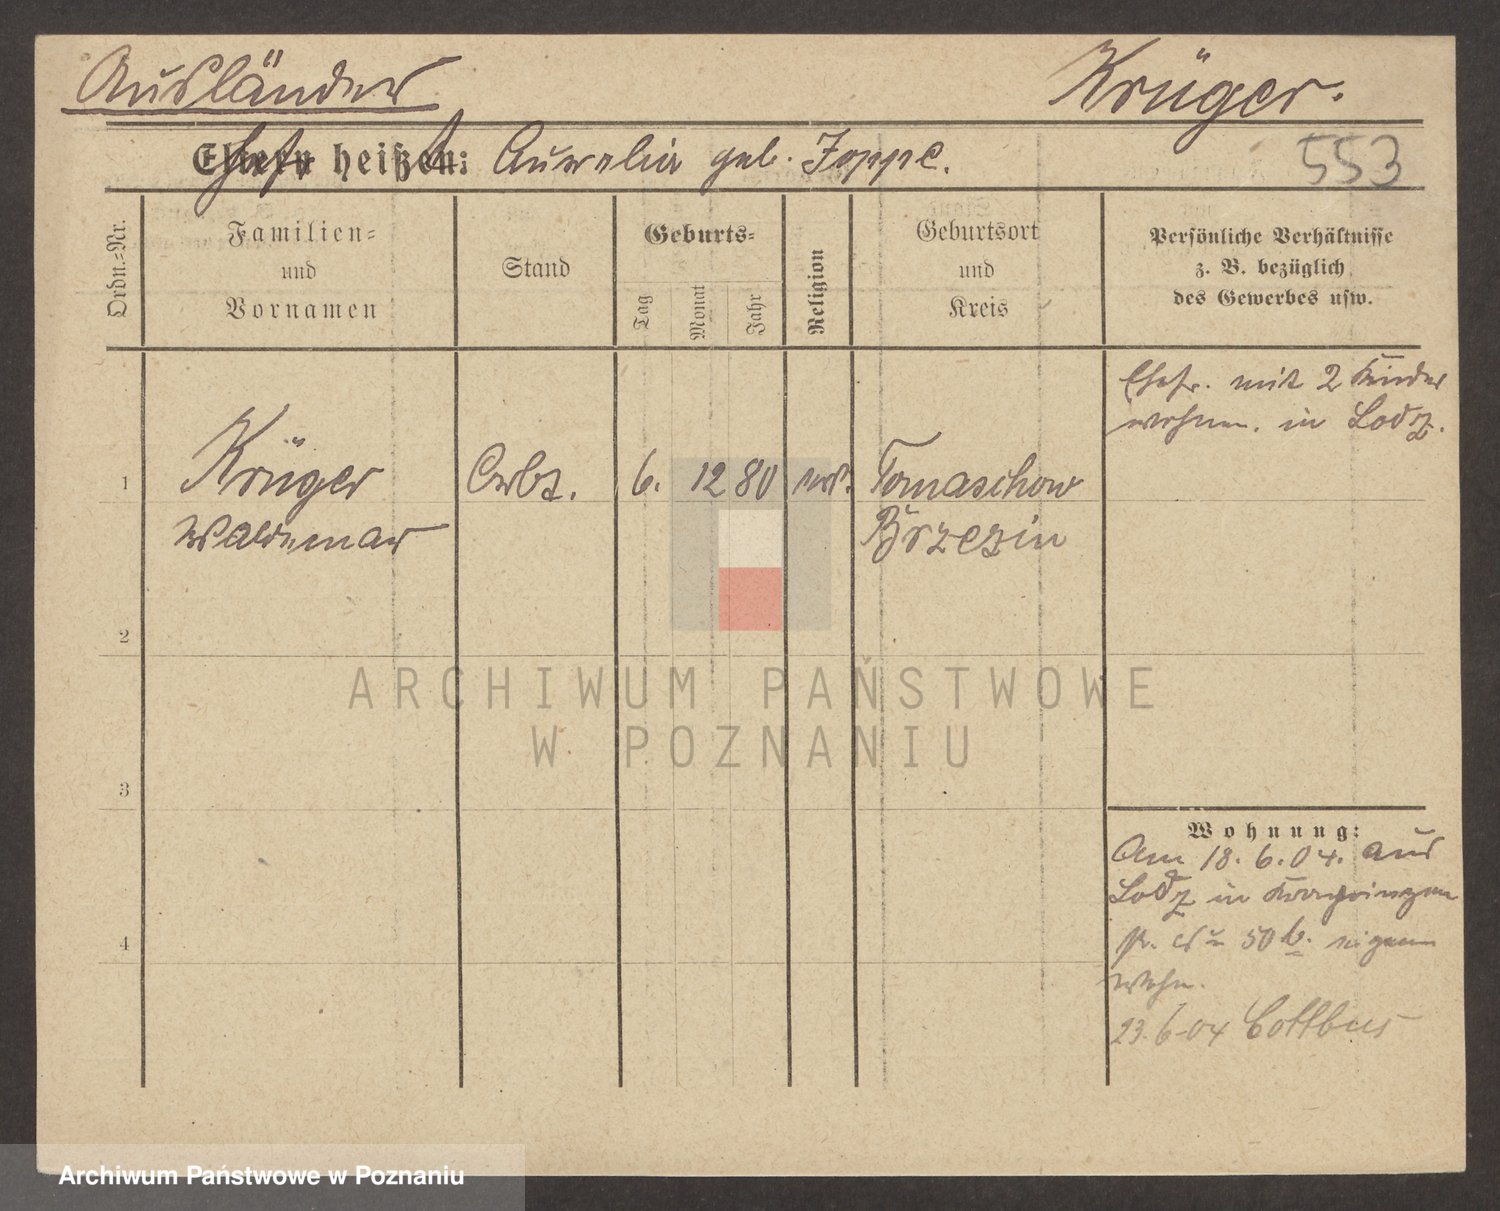 Ausländer
Krüger.
Eltern heißen: Aurelia geb. Joppe.
Ehefr
553
Ordn.-Nr.
Familien-
und
Vornamen
Stand
Geburts-
Tag
Monat
Jahr
Religion
Geburtsort
und
Kreis
Persönliche Verhältnisse
z. B. bezüglich
des Gewerbes usw.
Ehefr. mit 2 Kinder
wohnen. in Lodz.
1
Krüger
Waldemar
Arbt.
6.
12
80
Tomaschow
Brzezin
2
3
4
Wohnung:
Am 18. 6. 04. aus
Lodz in Kronprinzen
50 b. eigene
Wohn.
23.6.04 Cottbus
ARCHIWUM PAŃSTWOWE
W POZNANIU
Archiwum Państwowe w Poznaniu